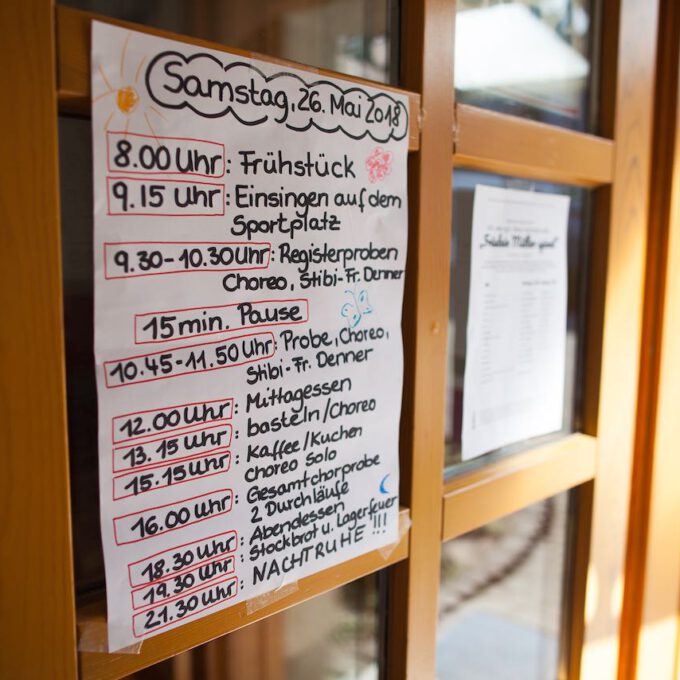 Samstag, 26. Mai 2018
8.00 Uhr: Frühstück
9.15 Uhr: Einsingen auf dem
Sportplatz
9.30-10.30 Uhr: Registerproben
Choreo, Stibi-Fr. Denner
15 min. Pause
10.45-11.50 Uhr: Probe, Choreo,
Stibi-Fr. Denner
12.00 Uhr: Mittagessen
13.15 Uhr: basteln/Choreo
15.15 Uhr: Kaffee/Kuchen
Choreo Solo
16.00 Uhr: Gesamtchorprobe
2 Durchläufe
18.30 Uhr: Abendessen
19.30 Uhr: Stockbrot u. Lagerfeuer
21.30 Uhr: NACHTRUHE !!!